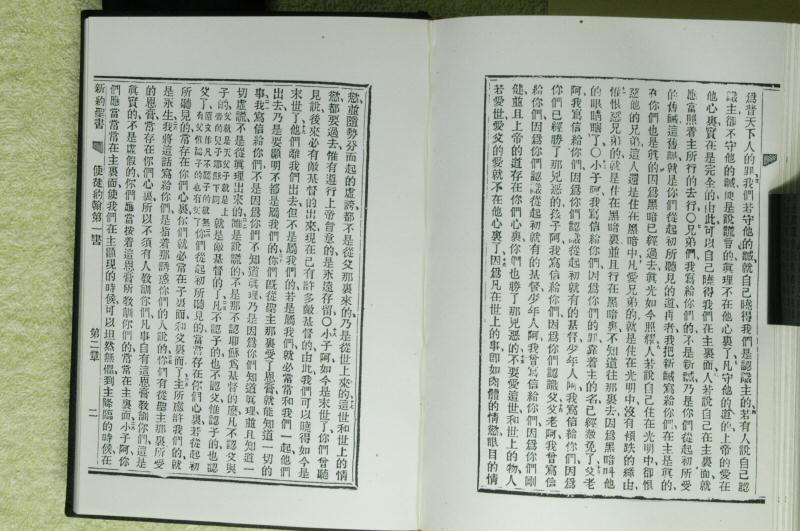 爲普天下人的罪我們若守他的誡就自己曉得我們是認識主的若有人說自己認
識主卻不守他的誡便是說謊言的眞理不在他心裏了凡守他的道的上帝的愛在
他心裏實在是完全的由此可以自己曉得我們在主裏面人若說自己在主裏面就
應當照着主所行的去行○兄弟們我寫給你們的不是新誡乃是你們從起初所受
的舊誡這舊誡就是你們從起初所聽見的道再者我把新誡寫給你們在主是眞的
在你們也是眞的因爲黑暗已經過去眞光如今照耀人若說自己住在光明中卻恨
惡他的兄弟這人還是住在黑暗中凡愛兄弟的就是住在光明中沒有傾跌的緣由
惟恨惡兄弟的就是住在黑暗裏並且行在黑暗裏不知道往那裏去因爲黑暗叫他
的眼睛瞎了○小子阿我寫信給你們因爲你們的罪靠着主的名已經赦免了父老
阿我寫信給你們因爲你們認識從起初就有的基督少年人阿我寫信給你們因爲
你們已經勝了那兇惡的孩子阿我寫信給你們因爲你們認識父父老阿我曾寫信
給你們因爲你們認識從起初就有的基督少年人阿我曾寫信給你們因爲你們剛
健並且上帝的道存在你們心裏你們也勝了那兇惡的不要愛這世和世上的物人
若愛世愛父的愛就不在他心裏了因爲凡在世上的事即如肉體的情慾眼目的情
慾並隨勢分而起的虛誇都不是從父那裏來的乃是從世上來的這世和世上的情
慾都要過去惟有遵行上帝旨意的是永遠存留○小子阿如今是末世了你們曾聽
見說後來必有敵基督的出來現在已有許多敵基督的由此我們可以曉得如今是
末世了他們雖我們出去但不是屬我們的若是屬我們就必常常和我們一起他們
出去乃是要顯明不都是屬我們的你們旣從聖主那裏受了恩膏就能知道一切的
事我寫信給你們不是因爲你們不知道眞理乃是因爲你們知道眞理並且知道一
切虛謊不是從眞理出來的誰是說謊的不是那不認耶穌爲基督的麼凡不認父與
子的就是敵基督的了凡不認子的也不認父惟認子的也認
父了你們從起初所聽見的當常存在你們心裏若從起初
所聽見的常存在你們心裏你們就必常在子裏面和父裏面了主所應許我們的就
是永生我將這話寫給你們是指着那誘惑你們的人說的你們有從聖主那裏所受
的恩膏常存在你們心裏所以不須有人教訓你們凡事自有這恩膏教訓你們這是
眞實的不是虛假的你們應當按着這恩膏所教訓你們的常常在主裏面小子阿你
們應當常常在主裏面使我們在主顯現的時候可以坦然無懼到主降臨的時候在
新約聖書 使徒約翰第一書 第二章